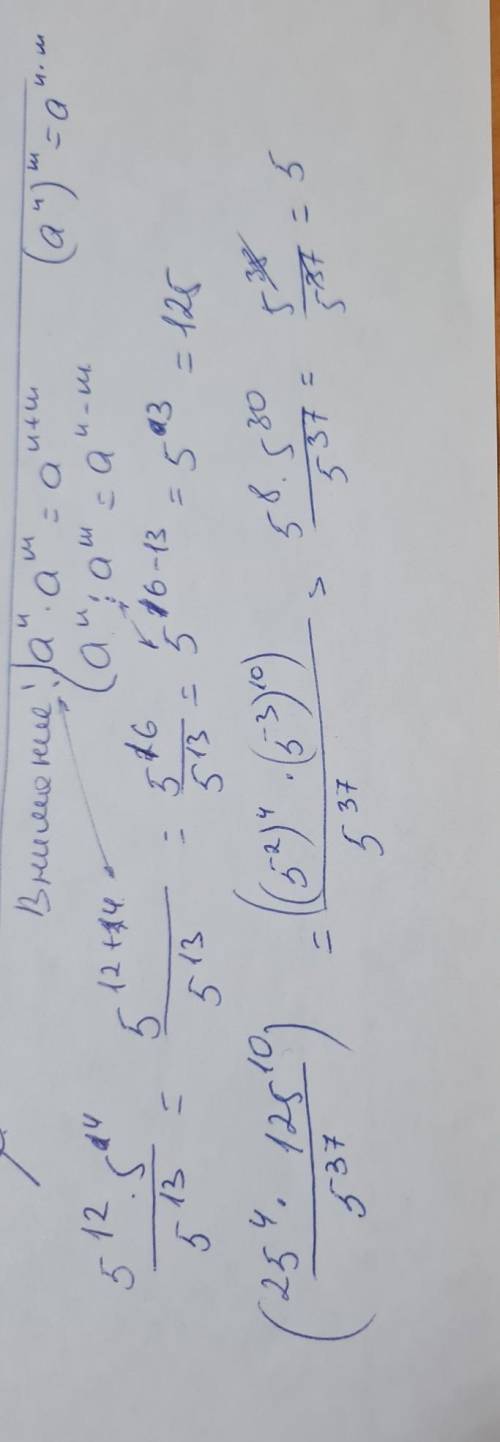 Внимание! aⁿ · aᵐ = aⁿ⁺ᵐ (aⁿ)ᵐ = aⁿ·ᵐ
(aⁿ : aᵐ = aⁿ⁻ᵐ
5¹² · 5⁴ / 5¹³ = 5¹²⁺⁴ / 5¹³ = 5¹⁶ / 5¹³ = 5¹⁶⁻¹³ = 5³ = 125
(25⁴ · 125¹⁰ / 5³⁷) = ((5²)⁴ · (5⁻³)¹⁰) / 5³⁷ = 5⁸ · 5³⁰ / 5³⁷ = 5³⁸ / 5³⁷ = 5